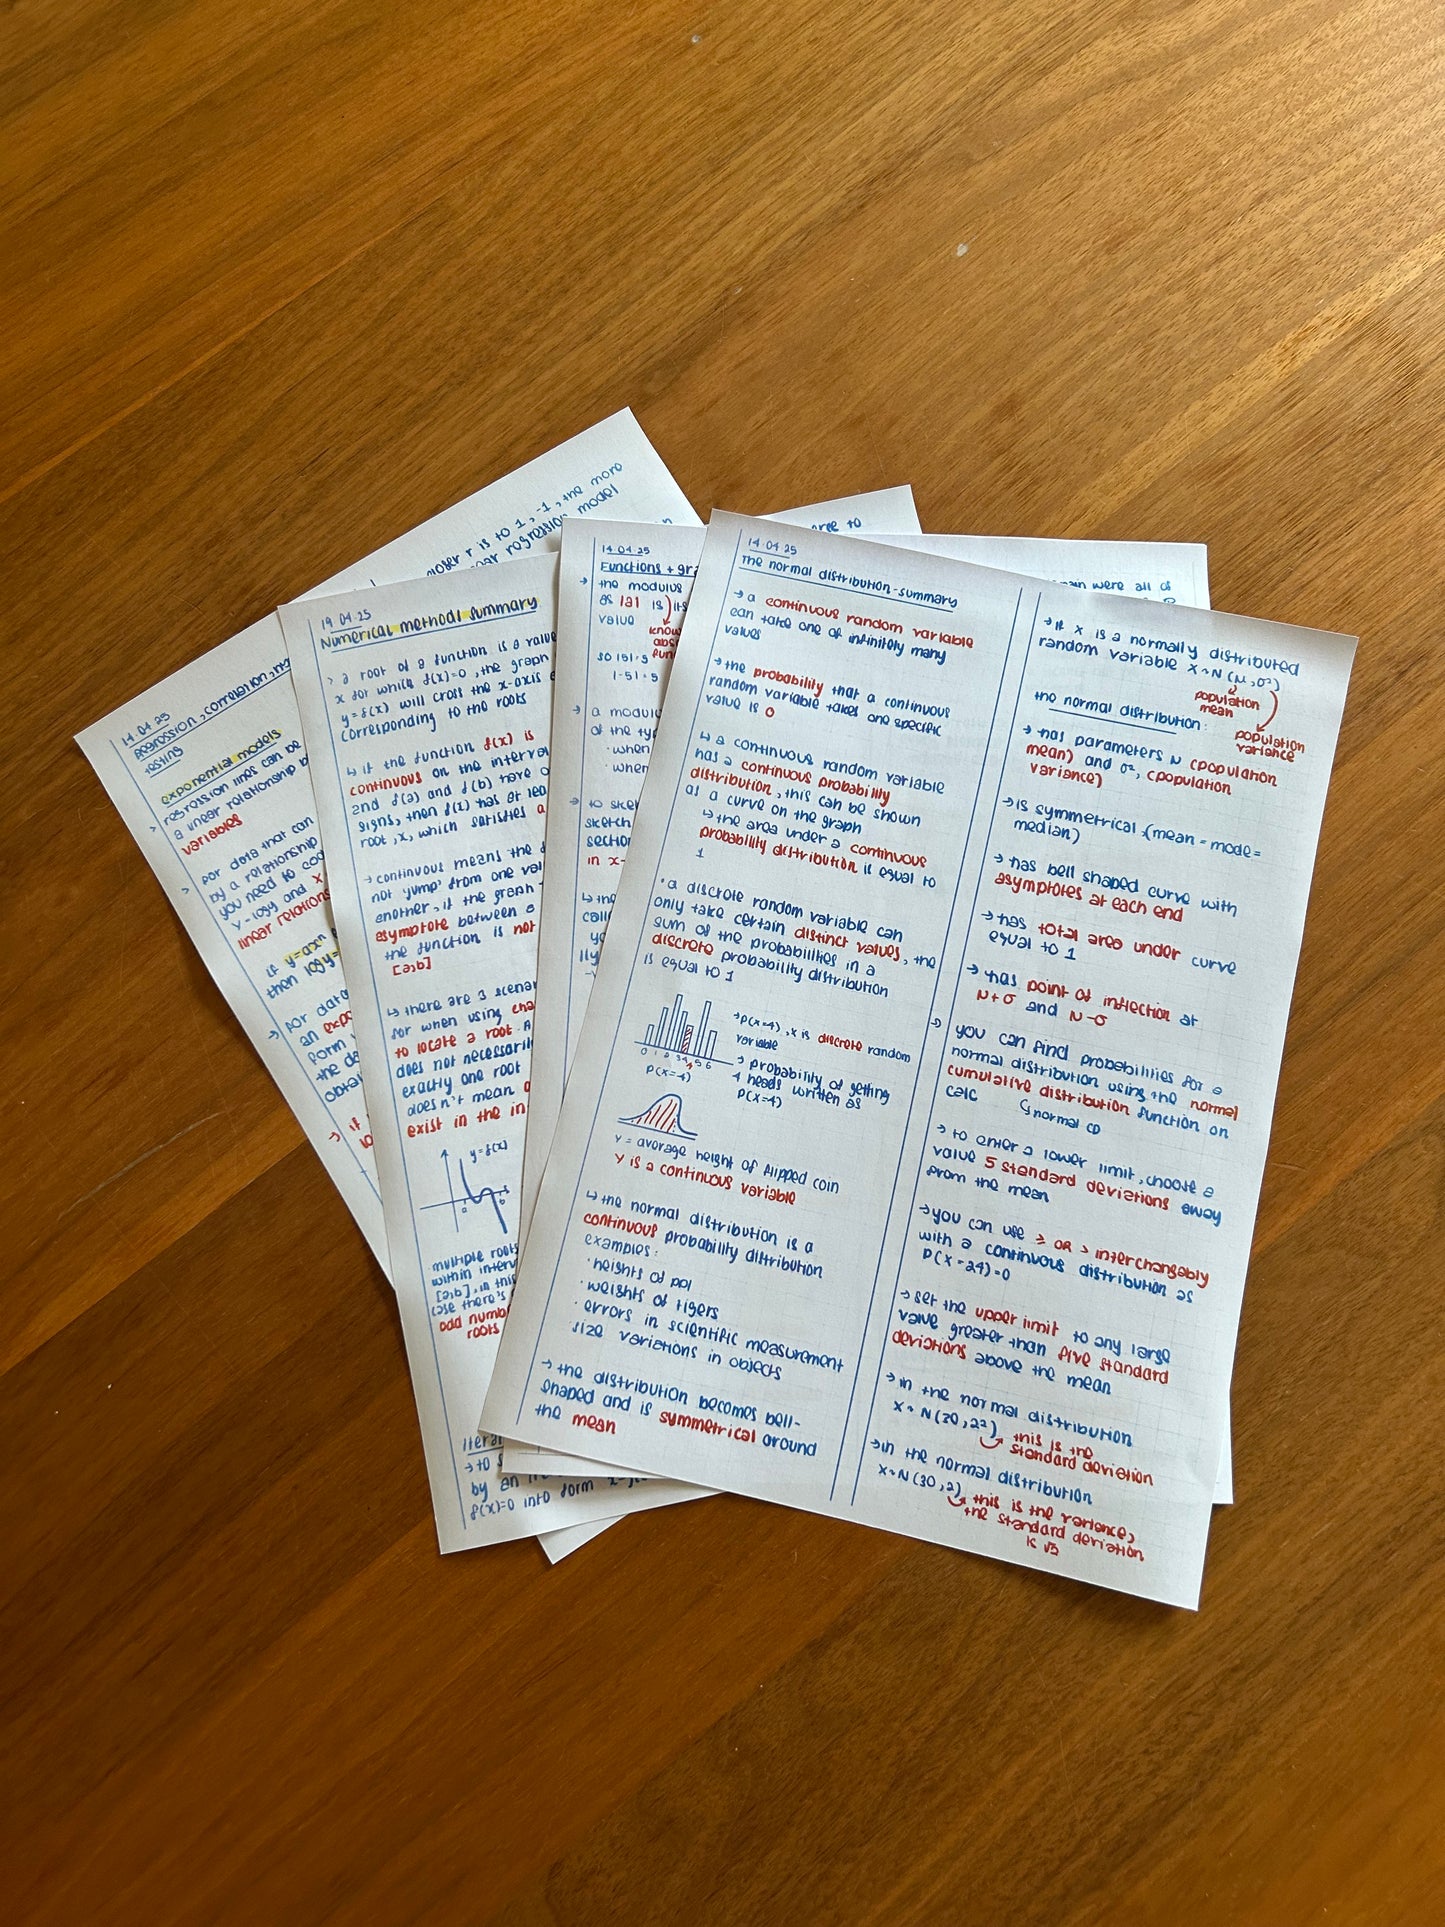 closer r is to 1, -1, the more
regression model
14.04.25
Regression, correlation,
testing
exponential models
regression lines can be
a linear relationship b
variables
for data that can
by a relationship
you need to
y - logy and x
linear relations
if y=axn
then logy=
for data
an expo
form
the da
obtai
if
19.04.25
Numerical method summary
> a root of a function is a value
x for which f(x)=0, the graph
y=f(x) will cross the x-axis
corresponding to the roots
↳ if the function f(x) is
continuous on the interval
and f(a) and f(b) have
signs, then f(x) has at lea
root, x, which satisfies a
→ continuous means the
not 'jump' from one val
another, if the graph
asymptote between a
the function is not
[a,b]
↳ there are 3 scenar
for when using cha
to locate a root. A
does not necessaril
exactly one root
doesn't mean
exist in the in
y=f(x)
a
b
multiple roots
within interv
[a,b], in this
case there's
odd numb
roots
iterat
→ to s
by an
f(x)=0 into form
14.04.25
Functions + gr
→ the modulus
as |a| is its
value
know
abs
fun
so |5|=5
|-5|=5
→ a modul
of the ty
· when
· when
→ to sket
sketch
sectio
in x-
↳ the
call
agree to
were all of
14.04.25
The normal distribution - summary
→ a continuous random variable
can take one of infinitely many
values
→ the probability that a continuous
random variable takes one specific
value is 0
↳ a continuous random variable
has a continuous probability
distribution, this can be shown
as a curve on the graph
↳ the area under a continuous
probability distribution is equal to
1
· a discrete random variable can
only take certain distinct values, the
sum of the probabilities in a
discrete probability distribution
is equal to 1
0 1 2 3 4 5 6
P(X=4)
→ P(X=4), X is discrete random
variable
→ probability of getting
4 heads written as
P(X=4)
Y = average height of flipped coin
Y is a continuous variable
↳ the normal distribution is a
continuous probability distribution
examples:
· heights of ppl
· weights of tigers
· errors in scientific measurement
· size variations in objects
→ the distribution becomes bell-
shaped and is symmetrical around
the mean
→ if X is a normally distributed
random variable X~N(μ,σ²)
population
mean
population
variance
the normal distribution:
→ has parameters μ (population
mean) and σ², (population
variance)
→ is symmetrical (mean = mode =
median)
→ has bell shaped curve with
asymptotes at each end
→ has total area under curve
equal to 1
→ has point of inflection at
μ+σ and μ-σ
you can find probabilities for a
normal distribution using the normal
cumulative distribution function on
calc
↳ normal CD
→ to enter a lower limit, choose a
value 5 standard deviations away
from the mean
→ you can use ≥ OR > interchangably
with a continuous distribution as
P(X=24)=0
→ set the upper limit to any large
value greater than five standard
deviations above the mean
→ in the normal distribution
X~N(20,2²)
this is the
standard deviation
→ in the normal distribution
X~N(30,2)
this is the variance,
the standard deviation